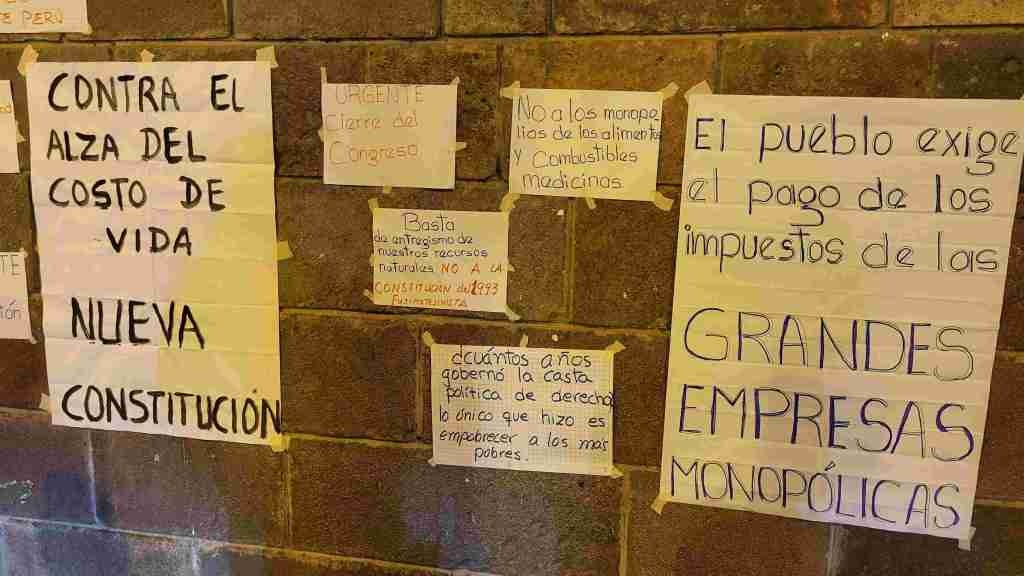 E PERÚ
CONTRA EL
ALZA DEL
COSTO DE
VIDA
NUEVA
CONSTITUCIÓN
URGENTE
Cierre del
Congreso
No a los monopo
lios de los alimentos
y Combustibles
medicinas
Basta
de entregismo de
nuestros recursos
naturales NO A LA
CONSTITUCION de 1993
FUJIMORISTA
dcuántos años
gobernó la casta
política de derecha
lo único que hizo es
empobrecer a los más
pobres.
El pueblo exige
el pago de los
impuestos de las
GRANDES
EMPRESAS
MONOPÓLICAS